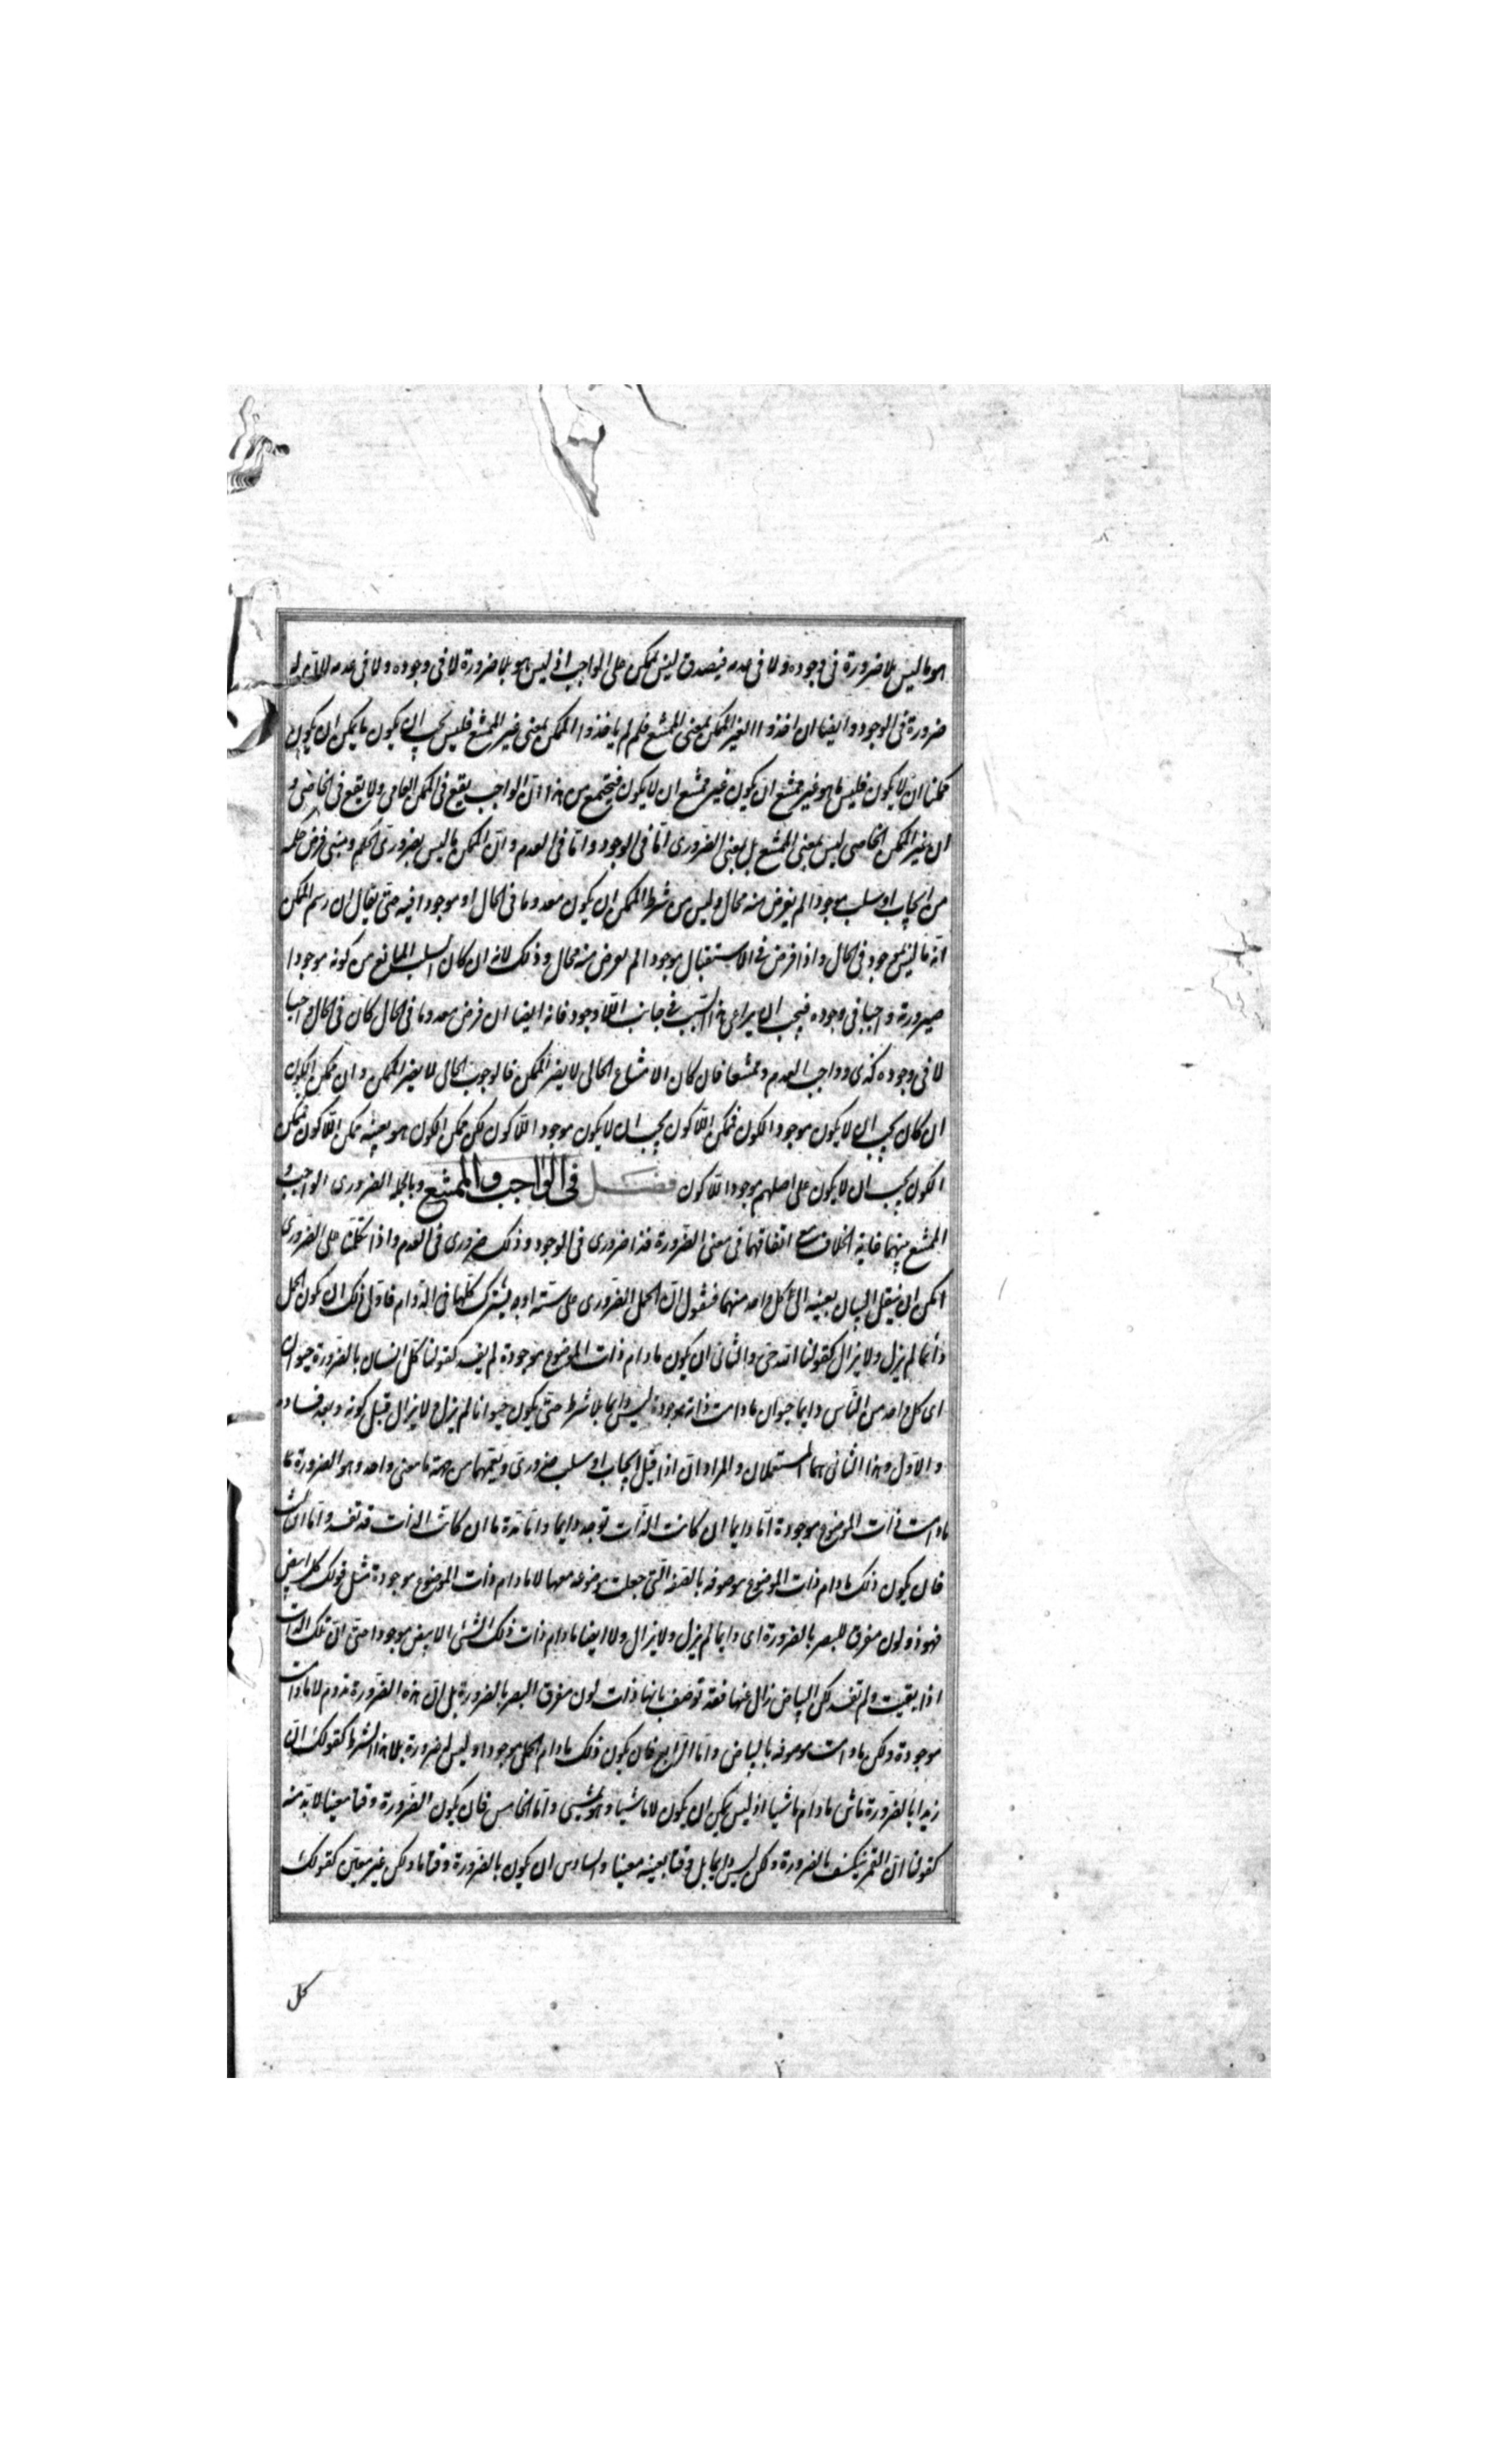 هو ما ليس بلا ضرورة فى وجوده ولا فى عدمه فيصدق ليس بممكن على الواجب اذ ليس هو بلا ضرورة لا فى وجوده ولا فى عدمه لان له
ضرورة فى الوجود وايضا ان اخذوا الغير الممكن بمعنى الممتنع فلم لم ياخذوا الممكن بمعنى غير الممتنع فليس يجب ان يكون ما يمكن ان يكون
ممكنا ان لا يكون فليس ما هو غير ممتنع ان يكون غير ممتنع ان لا يكون فيجتمع من هذا ان الواجب يقع فى الممكن العامى ولا يقع فى الخاصى و
ان غير الممكن الخاصى ليس بمعنى الممتنع بل بمعنى الضرورى اما فى الوجود واما فى العدم وان الممكن ما ليس بضرورى الحكم ومتى فرض حكمه
من ايجاب او سلب موجودا لم يعرض منه محال وليس من شرط الممكن ان يكون معدوما فى الحال او موجودا فيه حتى يقال ان رسم الممكن
انه ما ليس بموجود فى الحال واذا فرض فى الاستقبال موجودا لم يعرض منه محال وذلك لانه ان كان السبب المانع من كونه موجودا
صيرورته واجبا فى وجوده فيجب ان يراعى هذا السبب فى جانب اللاوجود فانه ايضا ان فرض معدوما فى الحال كان فى الحال واجبا
لا فى وجوده كذى وواجب العدم وممتنعا فان كان الامتناع الحالى لا يضر الممكن فالوجوب الحالى لا يضر الممكن وان ممكن الكون
ان كان يجب ان لا يكون موجود الكون فممكن اللاكون يجب ان لا يكون موجود اللاكون لكن ممكن الكون هو بعينه ممكن اللاكون فممكن
الكون يجب ان لا يكون على اصلهم موجود اللاكون فصل فى الواجب والممتنع وبالجملة الضرورى الواجب و
الممتنع بينهما غاية الخلاف مع اتفاقهما فى معنى الضرورة فذا ضرورى فى الوجود وذلك ضرورى فى العدم واذا تكلمنا على الضرورى
امكن ان ينقل البيان بعينه الى كل واحد منهما فنقول ان الحمل الضرورى على ستة اوجه يشترك كلها فى الدوام فاول ذلك ان يكون الحمل
دائما لم يزل ولا يزال كقولنا الله حى والثانى ان يكون ما دام ذات الموضوع موجودة لم يفسد كقولنا كل انسان بالضرورة حيوان
اى كل واحد من الناس دايما حيوان ما دامت ذاته موجودة ليس دايما بلا شرط حتى يكون حيوانا لم يزل ولا يزال قبل كونه وبعد فساده
والاول وهذا الثانى هما المستعملان والمراد ان اذا قيل ايجاب او سلب ضرورى ويعمهما من جهة ما معنى واحد وهو الضرورة ما
ما دامت ذات الموضوع موجودة اما دايما ان كانت الذات توجد دايما واما مدة ما ان كانت الذات قد تفسد واما الثالث
فان يكون ذلك ما دام ذات الموضوع موصوفة بالصفة التى جعلت موضوعة معها لا ما دام ذات الموضوع موجودة مثل قولك كل ابيض
فهو ذو لون مفرق للبصر بالضرورة اى دايما لم يزل ولا يزال ولا ايضا ما دام ذات ذلك الشئ الابيض موجودا حتى ان تلك الذات
اذا بقيت ولم تفسد لكن البياض زال عنها فقد توصف بانها ذات لون مفرق البصر بالضرورة بل ان هذه الضرورة تدوم لا ما دامت
موجودة ولكن ما دامت موصوفة بالبياض واما الرابع فان يكون ذلك ما دام الحمل موجودا وليس له ضرورة بلا هذا الشرط كقولك ان
زيدا بالضرورة ماش ما دام ماشيا اذ ليس يمكن ان يكون لا ماشيا وهو يمشى واما الخامس فان يكون الضرورة وقتا معينا لا بد منه
كقولنا ان القمر ينكسف بالضرورة ولكن ليس دايما بل وقتا بعينه معينا والسادس ان يكون بالضرورة وقتا ما ولكن غير معين كقولك
كل